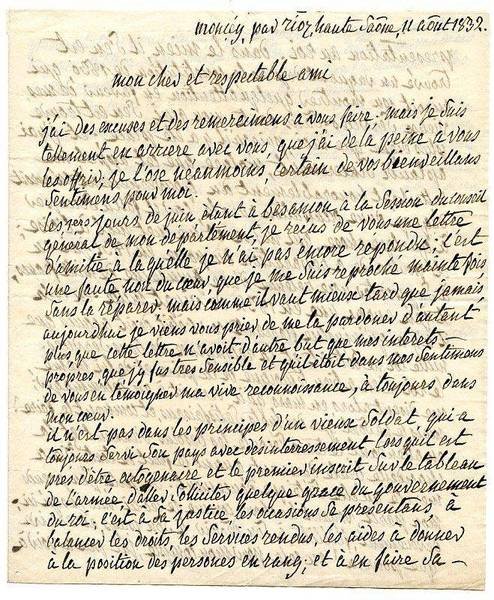 moncey, par rioz haute Saône, 11 août 1832.
mon cher et respectable ami
j'ai des excuses et des remercimens à vous faire. mais je suis
tellement en arriere avec vous que j'ai de la peine à vous
les offrir, je l'ose néanmoins, certain de vos bienveillans
Sentimens pour moi.
les 1ers jours de juin étant à besançon à la Session du conseil
général de mon département, je reçus de vous une lettre
d'amitié à la quelle je n'ai pas encore repondu; c'est
une faute non du cœur, que je me suis reproché mainte fois
Sans la réparer. mais comme il vaut mieux tard que jamais,
aujourdhui je viens vous prier de me la pardoner d'autant
plus que cette lettre n'avoit d'autre but que mes interets
propres, que j'y fus tres Sensible et qu'il étoit dans mes Sentimens
de vous en témoigner ma vive reconnoissance, à toujours dans
mon cœur.
il n'est pas dans les principes d'un vieux Soldat, qui a
toujours Servi Son pays avec désinterressement, lorsqu'il est
pres d'être octogenaire et le premier inscrit Sur le tableau
de l'armée d'aller Solliciter quelque grace du gouvernement
du roi. c'est à Sa justice, les occasions Se présentans, à
balancer les droits, les Services rendus, les aides à donner
à la position des persones en rang; et à en faire Sa —